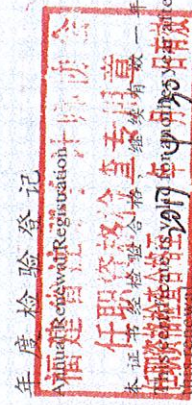 年度检验登记
Annual Renewal Registration
福建省注册会计师协会
任职资格检查专用章
本证书经检验合格，继续有效一年
This certificate is valid for another year after
this renewal
2017